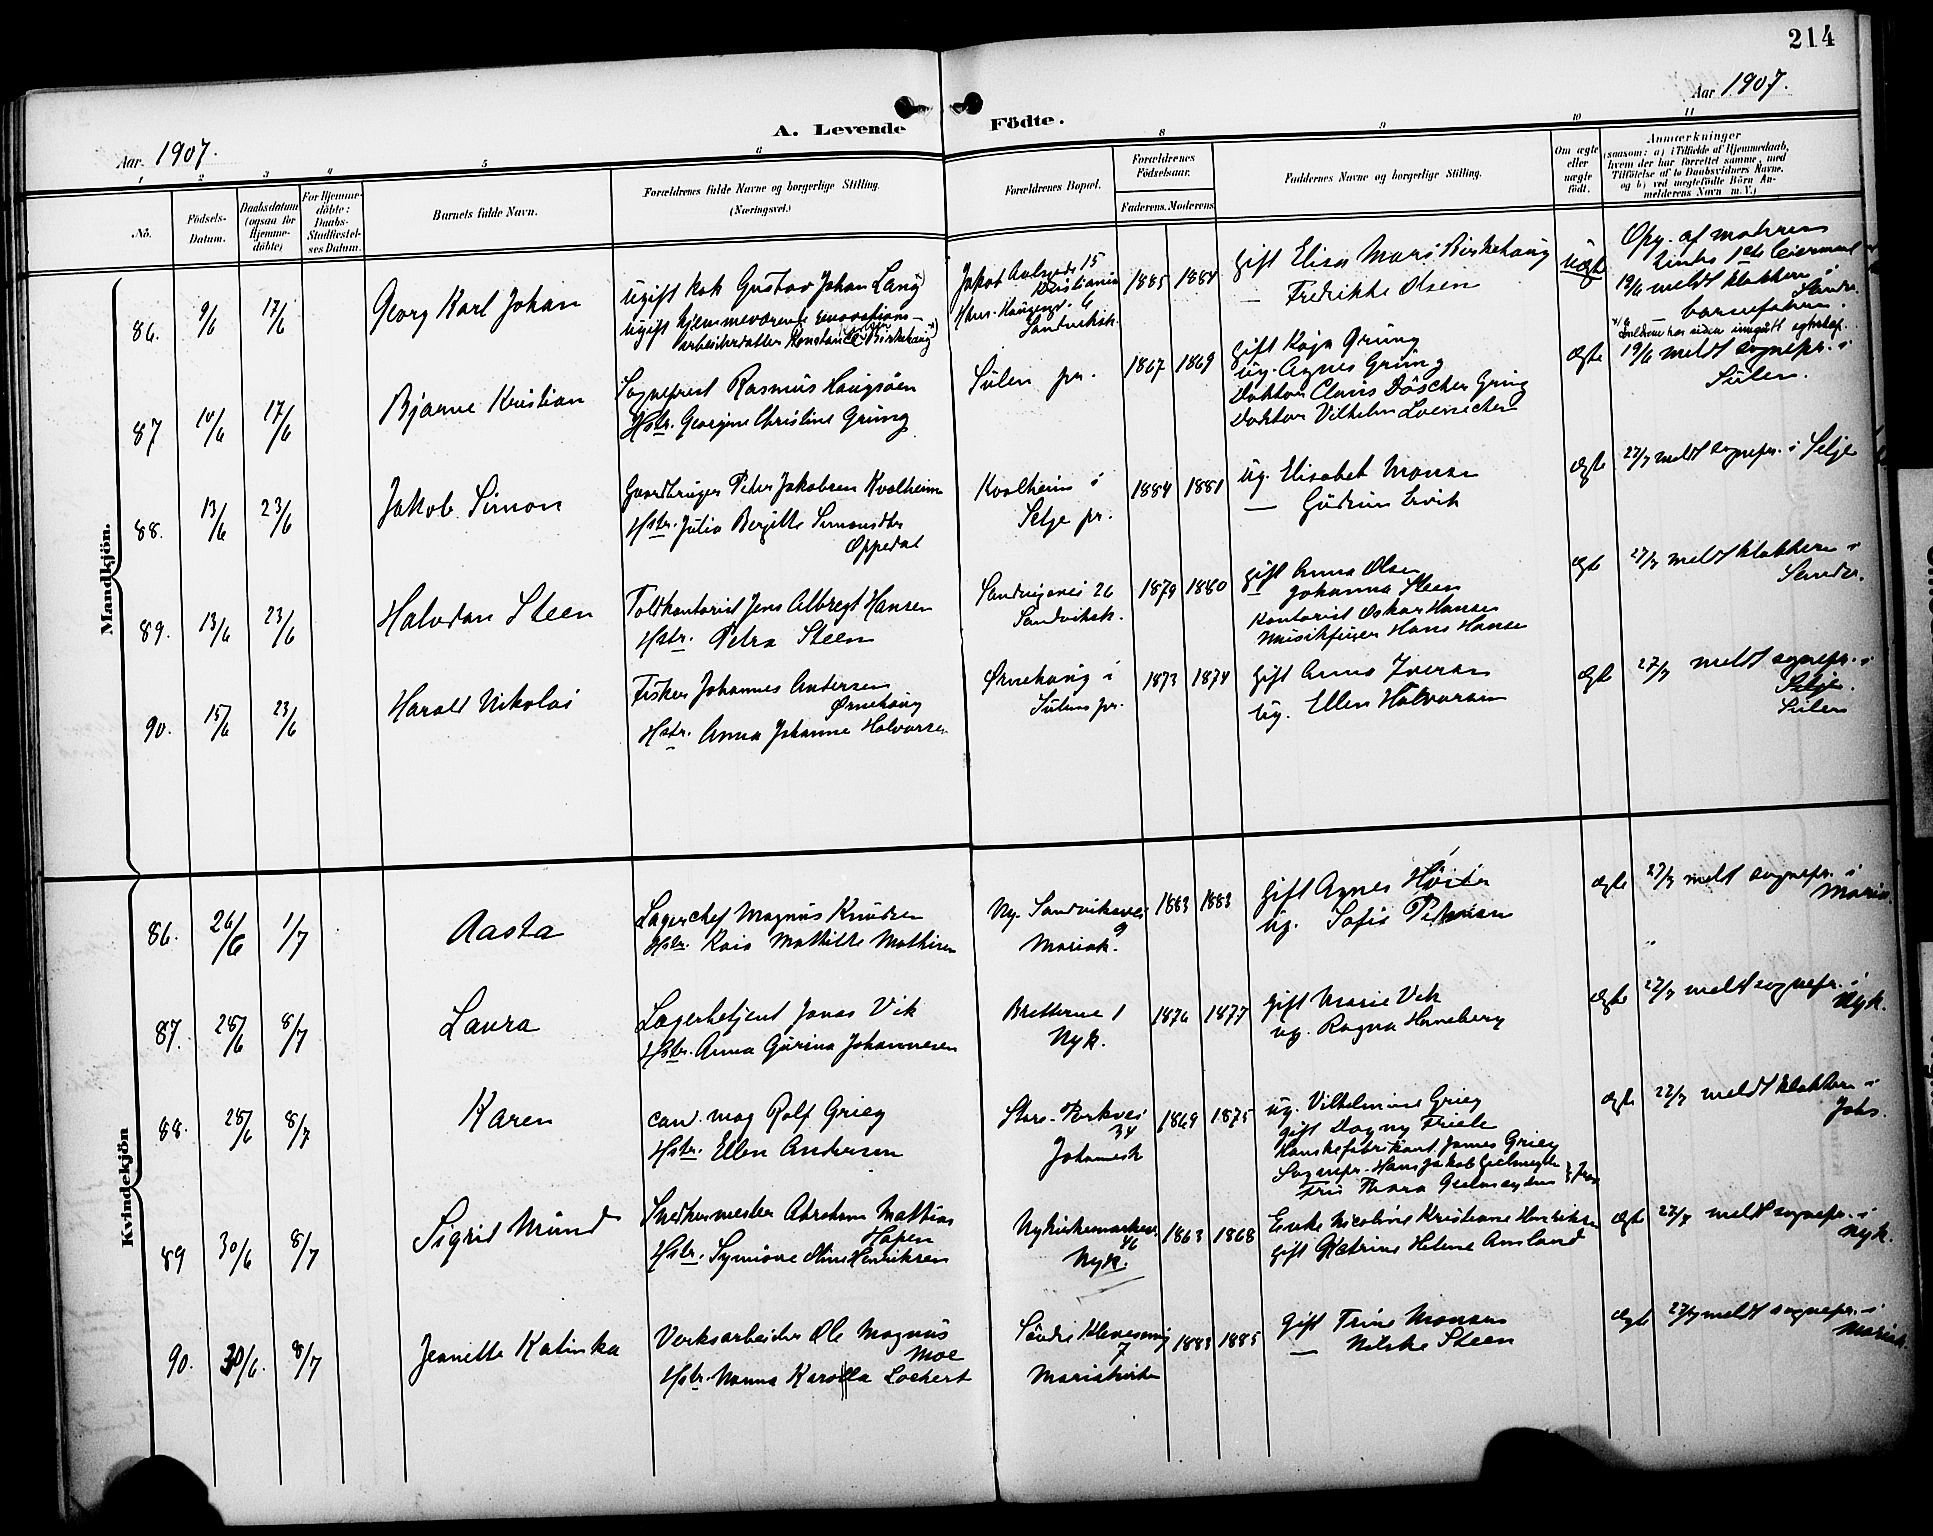 214
Aar 1907.
Aar 1907.
A. Levende Födte.
1 2 3 4 5 6 8 9 10 11
No.
Födsels-
Datum.
Daabsdatum
(ogsaa for
Hjemme-
döbte)
For Hjemme-
döbte:
Daabs-
Stadfæstel-
ses Datum.
Barnets fulde Navn.
Forældrenes fulde Navne og borgerlige Stilling.
(Næringsvei.)
Forældrenes Bopæl.
Forældrenes
Födselsaar.
Faderens. Moderens.
Faddernes Navne og borgerlige Stilling.
Om ægte
eller
uægte
født.
Anmærkninger
(saasom: a) i Tilfælde af Hjemmedaab,
hvem der har forrettet samme, med
Tilföielse af to Daabsvidners Navne,
og b) ved uægtefödte Börn An-
melderens Navn m. V.)
Mandkjön.
86. 9/6 17/6 Georg Karl Johan
ugift kok Gustav Johan Lang
ugift hjemmeværende renovations-
arbeiderdatter Konstance Birkehaug
Jakob Aalsgade 15
Kristiania
Sandviksk.
1885 1884
gift Elisa Marie Birkehaug
— Fredrikke Olsen
uægte
Opg. af moderen
19/6 meldt klokkeren i
Sandv.
barnefaderen.
87 10/6 17/6 Bjarne Kristian
Sogneprest Rasmus Haugsøen
Hstr. Georgine Christine Grung
Sulen pr.
1867 1869
gift Kaja Grung
ug. Agnes Grung
Doktor Claus Döscher Grung
Doktor Vilhelm Loennecken
ægte
19/6 meldt sognepr. i
Sulen.
88. 13/6 23/6 Jakob Simon
Gaardbruger Peter Jakobsen Kvalheim
Hstr. Julia Bergitte Simonsdtr
Oppedal
Kvalheim i
Selje pr.
1884 1881
ug. Elisabet Monsen
— Gudrun Ervik
ægte
27/7 meldt sognepr. i Selje
89. 13/6 23/6 Halvdan Steen
Toldkontorist Jens Albregt Hansen
Hstr. Petra Steen
Sandviksvei 26
Sandviksk.
1879 1880
gift Anna Olsen
Johanna Steen
Kontorist Oskar Hansen
Musikfører Hans Hansen
ægte
27/7 meldt klokkeren i
Sandv.
90. 15/6 23/6 Harald Nikolai
Fisker Johannes Andersen
Ørnehaug
Hstr. Anna Johanne Halvorsen
Ørnehaug i
Sulens pr.
1873 1874
gift Anna Iversen
ug. Ellen Halvorsen
ægte
27/7 meldt sognepr. i
Selje.
Sulen
Kvindekjön
86. 26/6 1/7 Aasta
Lagerchef Magnus Knudsen
Hstr. Kaia Mathilde Mathisen
Ny. Sandviksvei
9
Mariak.
1883 1883
gift Agnes Høiter
ug. Sofie Petersen
ægte
27/7 meldt sognepr. i
Mariak.
87. 28/6 8/7 Laura
Lagerbetjent Jonas Vik
Hstr. Anna Gurina Johannesen
Bretterne 1
Nyk.
1876 1877
gift Marie Vik
ug. Ragna Henneberg
ægte
27/7 meldt sognepr. i
Nyk.
88. 28/6 8/7 Karen
cand mag Rolf Grieg
Hstr. Ellen Andersen
Store-Parkvei
34
Johannesk
1869 1875
ug. Vilhelmine Grieg
gift Dagny Friele
Hanskefabrikant James Grieg
Sognepr. Hans Jakob Geelmuyden
Fru Thora Geelmuyden
ægte
27/7 meldt klokkeren i
Johs.
89 30/6 8/7 Sigrid Mund
Snedkermester Abraham Mathias
Hopen
Hstr. Synnöve Oline Henriksen
Nykirkesmuget
46
Nyk.
1863 1868
Enke Nicoline Kristiane Henriksen
gift Katrine Helene Amland
ægte
27/7 meldt sognepr. i
Nyk.
90. 30/6. 8/7 Jeanette Katinka
Verksarbeider Ole Magnus
Moe
Hstr. Nanna Karolla Lockert
Söndre Klevesmug
7
Mariakirke
1883 1885
gift Trine Monsen
— Nilske Steen
ægte
27/7 meldt sognepr. i
Mariak.